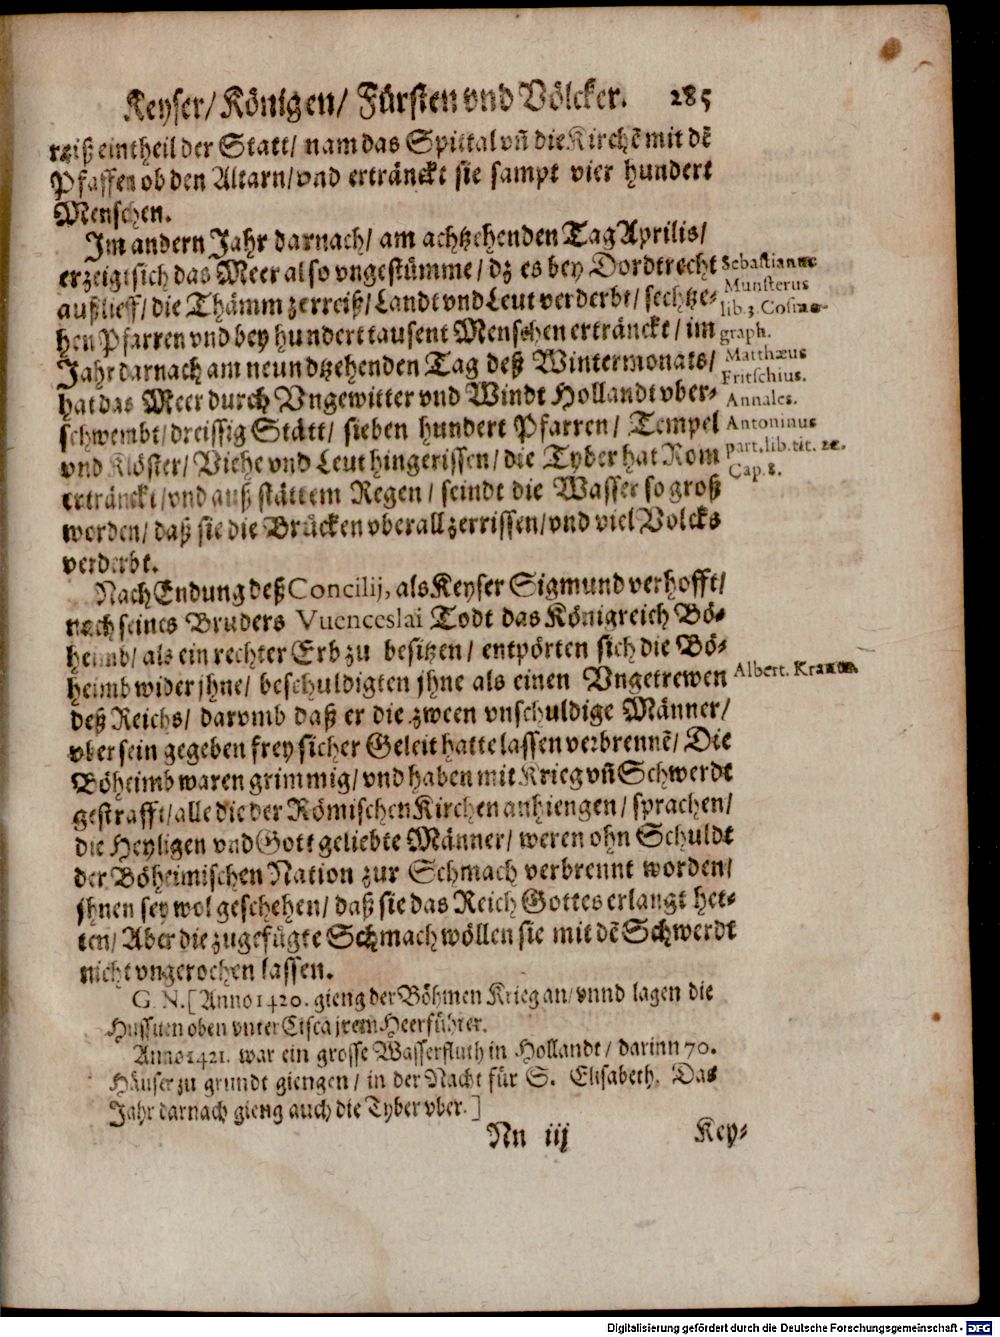 Keyser/ Königen/ Fürsten vnd Völcker. 285
reiß ein theil der Statt/ nam das Spittal vñ die Kirchẽ mit dẽ
Pfaffen ob den Altarn/ vnd ertränckt sie sampt vier hundert
Menschen.
Im andern Jahr darnach/ am achtzehenden Tag Aprilis/
erzeigt sich das Meer also vngestümme/ dz es bey Dordtrecht
außlieff/ die Thämm zerreiß/ Landt vnd Leut verderbt/ sechtze-
hen Pfarren vnd bey hundert tausent Menschen ertränckt/ im
Jahr darnach am neundtzehenden Tag deß Wintermonats/
hat das Meer durch Vngewitter vnd Windt Hollandt vber-
schwembt/ dreissig Stätt/ sieben hundert Pfarren/ Tempel
vnd Klöster/ Viehe vnd Leut hingerissen/ die Tyber hat Rom
ertränckt/ vnd auß stättem Regen/ seindt die Wasser so groß
worden/ daß sie die Brücken vberall zerrissen/ vnd viel Volcks
verderbt.
Sebastianus
Munsterus
lib. 3. Cosmo-
graph.
Matthæus
Fritschius.
Annales.
Antoninus
part. lib. tit. 22.
Cap. 8.
Nach Endung deß Concilij, als Keyser Sigmund verhofft/
nach seines Bruders Vuenceslai Todt das Königreich Bö-
heimb/ als ein rechter Erb zu besitzen/ entpörten sich die Bö-
heimb wider jhne/ beschuldigten jhne als einen Vngetrewen
deß Reichs/ darvmb daß er die zween vnschuldige Männer/
vber sein gegeben frey sicher Geleit hatte lassen verbrennẽ/ Die
Böheimb waren grimmig/ vnd haben mit Krieg vñ Schwerdt
gestrafft/ alle die der Römischen Kirchen anhiengen/ sprachen/
die Heyligen vnd Gott geliebte Männer/ weren ohn Schuldt
der Böheimischen Nation zur Schmach verbrennt worden/
jhnen sey wol geschehen/ daß sie das Reich Gottes erlangt het-
ten/ Aber die zugefügte Schmach wöllen sie mit dẽ Schwerdt
nicht vngerochen lassen.
Albert. Krantz.
G. N. [Anno 1420. gieng der Böhmen Krieg an/ vnnd lagen die
Hussiten oben vnter Cisca jrem Heerführer.
Anno 1421. war ein grosse Wasserfluth in Hollandt/ darinn 70.
Häuser zu grundt giengen/ in der Nacht für S. Elisabeth. Das
Jahr darnach gieng auch die Tyber vber.]
Nn iij Key-
Digitalisierung gefördert durch die Deutsche Forschungsgemeinschaft - DFG